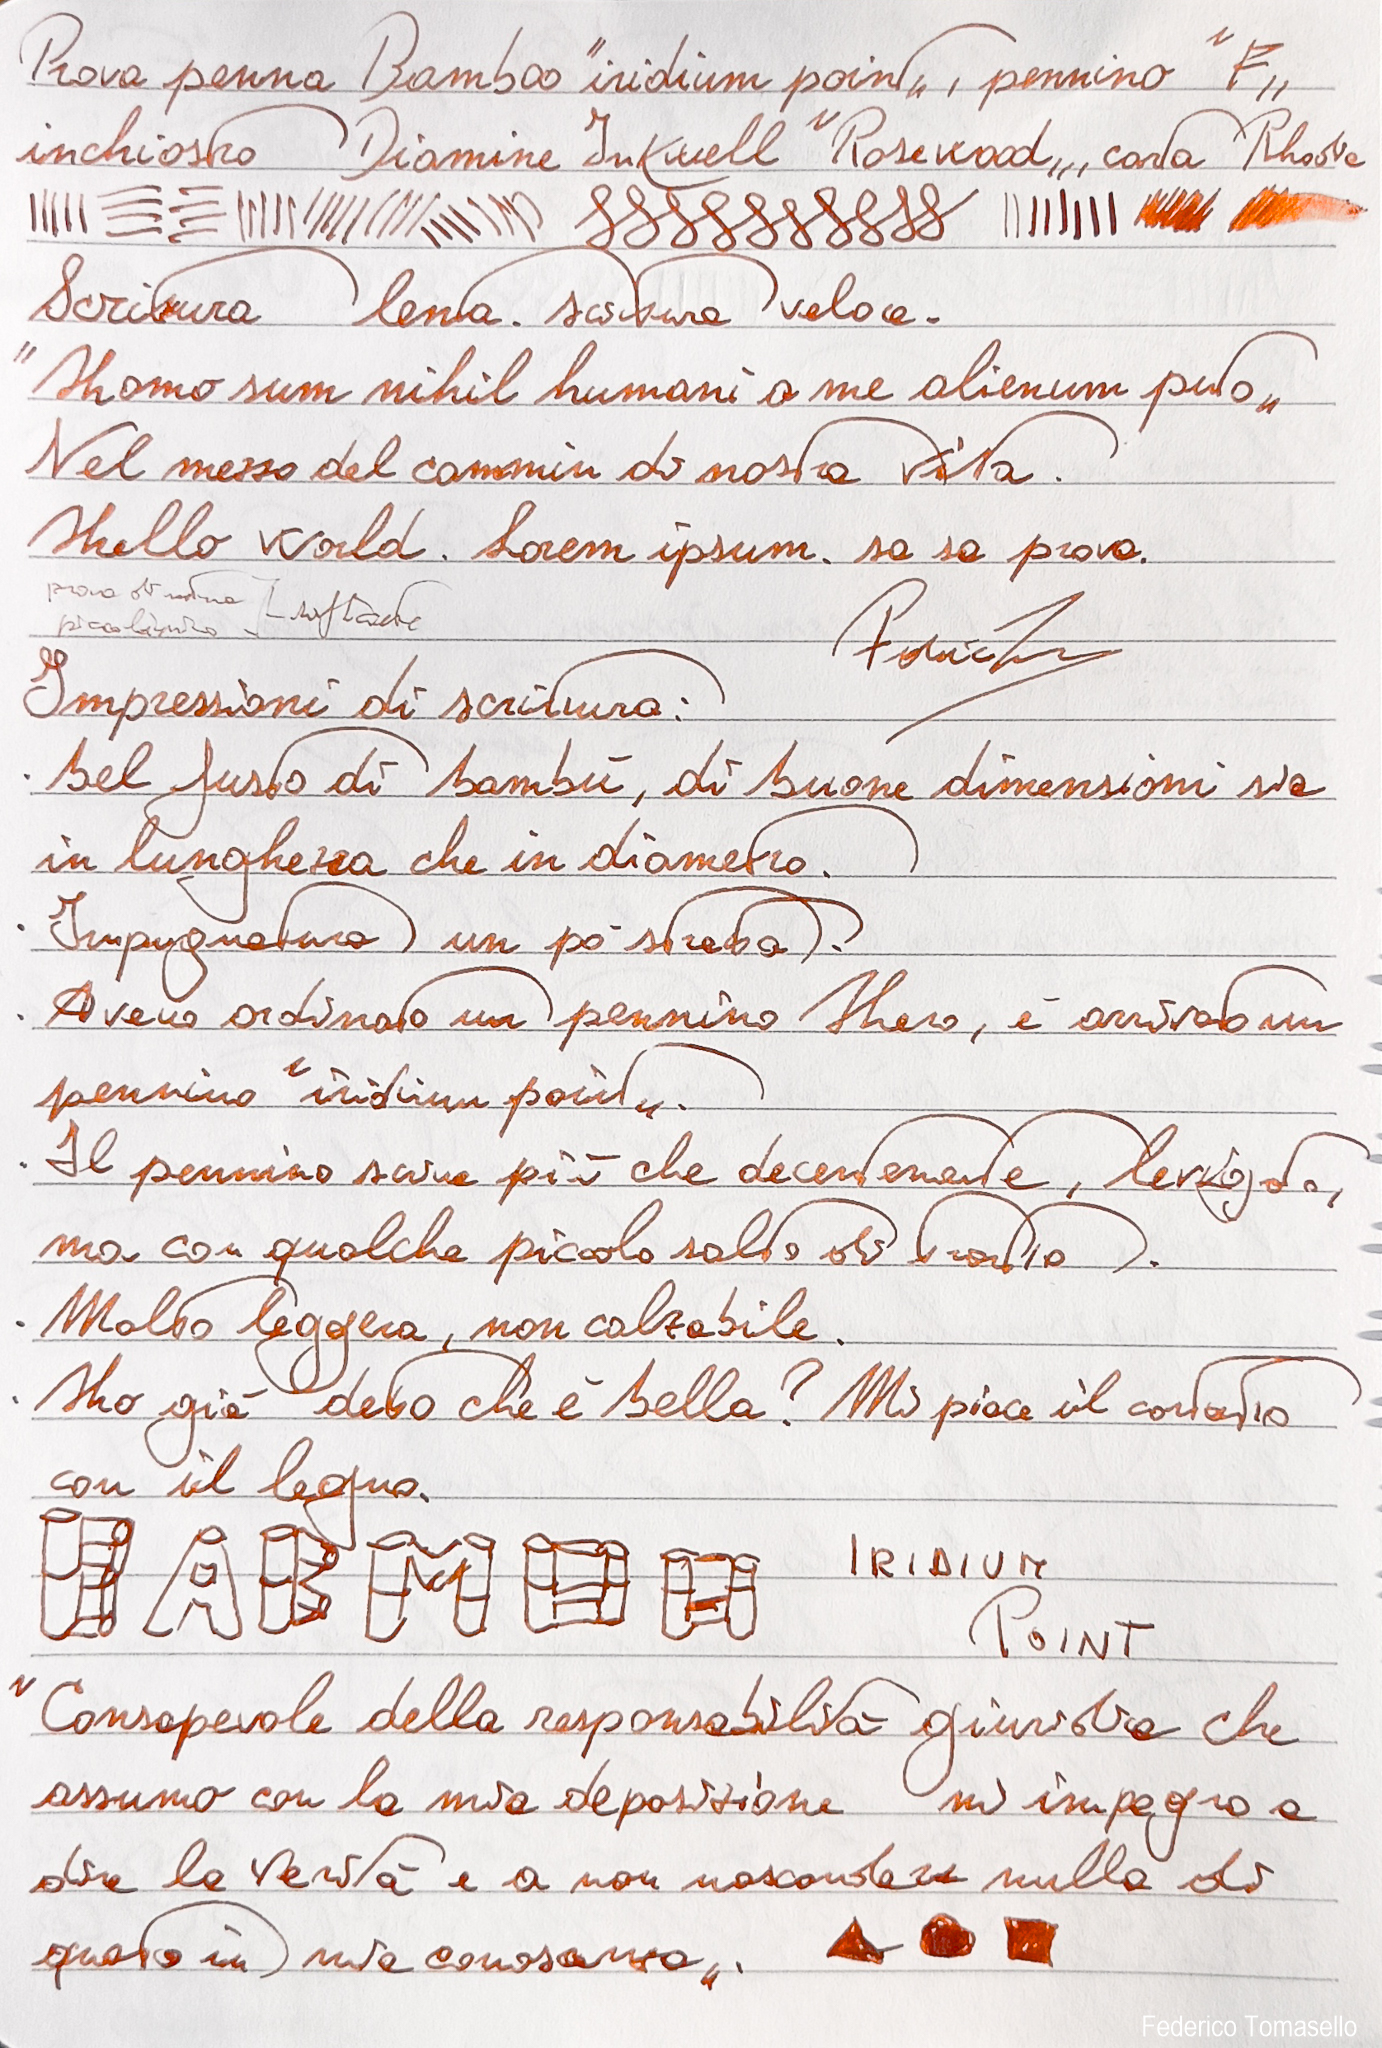 Prova penna Bamboo "iridium point", pennino "F"
inchiostro Diamine InKwell "Rosewood", carta Rhodia
Scrittura lenta. scrittura veloce.
"Homo sum nihil humani a me alienum puto"
Nel mezzo del cammin di nostra vita.
Hello world. Lorem ipsum. sa sa prova.
prova di scrittura
piccolissimo
Impressioni di scrittura:
· bel fusto di bambù, di buone dimensioni sia
in lunghezza che in diametro.
· Impugnatura un pò stretta.
· Avevo ordinato un pennino Hero, è arrivato un
pennino "iridium point".
· Il pennino scrive più che decentemente, levigato,
ma con qualche piccolo salto di tratto.
· Molto leggera, non calzabile.
· Ho già detto che è bella? Mi piace il contatto
con il legno.
BAMBOO
IRIDIUM
POINT
"Consapevole della responsabilità giuridica che
assumo con la mia deposizione mi impegno a
dire la verità e a non nascondere nulla di
quanto in mia conoscenza".
Federico Tomasello